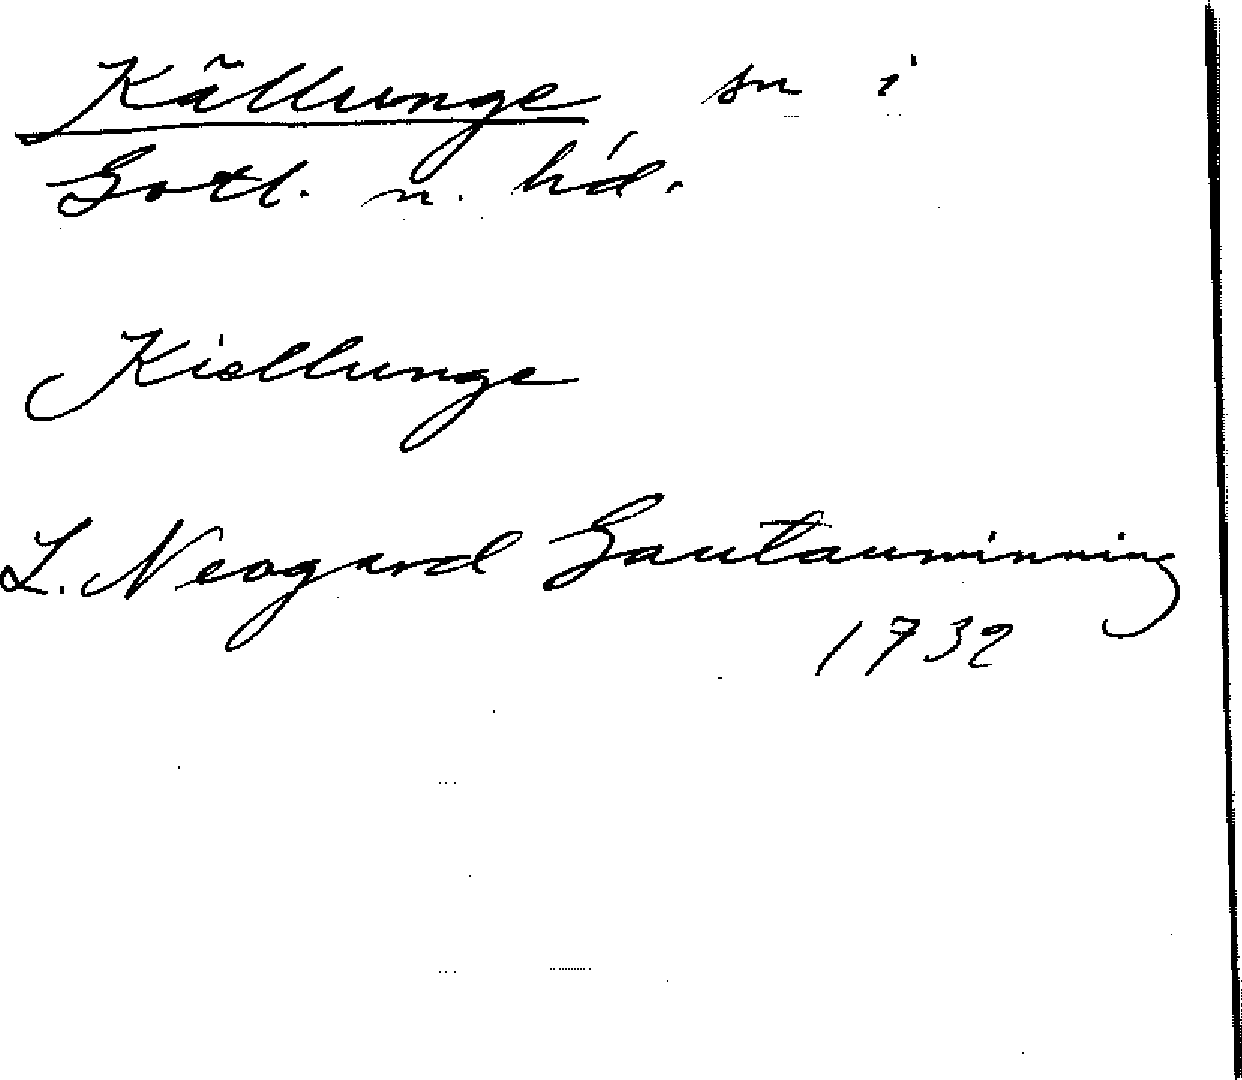 Källunge sn i
Gotl. n. hd.
Kiellunge
L. Neogard Gautauminning
1732